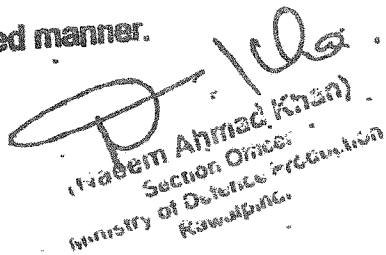 ed manner.
(Naeem Ahmad Khan)
Section Officer
Ministry of Defence Production
Rawalpindi.